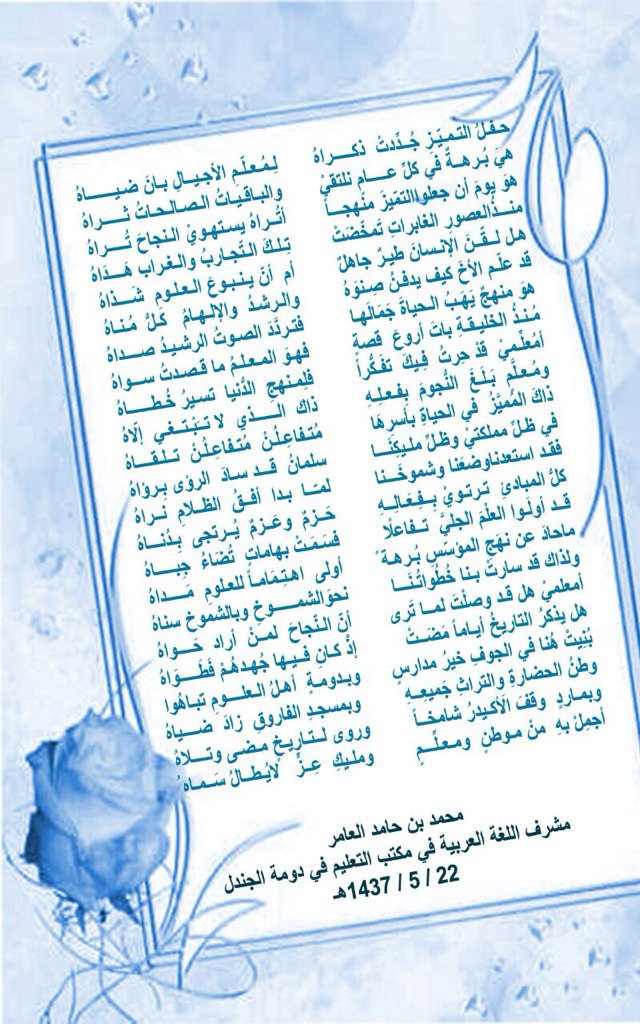 حفلُ التميّزِ جُدِّدتْ ذكراهُ لِمُعلّمِ الأجيالِ بانَ ضياهُ
هيَ بُرهةٌ في كلِّ عامٍ نلتقيْ والباقياتُ الصالحاتُ ثراهُ
هوَ يومَ أن جعلوا التميّزَ منهجاً أثُراهُ يستهويْ النجاحَ تُراهُ
منذُ العصورِ الغابراتِ تمخّضتْ تلكَ التّجاربُ والغراب هَدَاهُ
هل لقّنَ الإنسانَ طيرٌ جاهلٌ أم أنّ ينبوعَ العلومِ شذاهُ
قد علّمَ الأخَّ كيف يدفنُ صنوَهُ والرشدُ والإلهامُ كلُّ مُناهُ
هو منهجٌ يهَبُ الحياةَ جمالَها فتردّدَ الصوتُ الرشيدُ صداهُ
مُنذُ الخليقةِ باتَ أروعَ قصةٍ فهوَ المعلمُ ما قصدتُ سواهُ
أمُعلّميْ قدْ جرتُ فيكَ تفكُّراً فلِمنهجِ الدُّنيا تسيرُ خُطاهُ
ومُعلّمٍ بلَغَ النُّجومَ بفعلِهِ ذاك الذي لا تبْتغي إلّاهُ
ذاكَ المُميّزُ في الحياةِ بأسرِهَا مُتفاعلُنْ مُتفاعلُنْ تلقاهُ
في ظلِّ مملكتيْ وظلِّ مليكِنَا سلمانُ قد سادَ الرؤى برؤاهُ
فقد استعدنا وضعَنا وشموخَنا لمّا بدا أفقُ الظلامِ نراهُ
كلُّ المبادئِ ترتويْ بفعالِهِ حَزمٌ وعَزمٌ يُرتجى بدُناهُ
قد أولُوا العلْمَ الجليْ تفاعلًا فسَمَتْ بهاماتٍ تُضَاءُ جباهُ
ماحادَ عن نهجِ المؤسّسِ بُرهةً أولى اهتماماً للعلومِ مَداهُ
ولذاك قد سارتْ بنا خُطُواتُنَا نحوَ الشموخِ وبالشموخِ سناهُ
أمعلميْ هل قد وصلتَ لما تَرى أنّ النّجاحَ لمنْ أرادَ حَواهُ
هل يذكرُ التاريخُ أياماً مَضتْ إذْ كان فيها جُهدهُمْ فطَواهُ
بُنيتْ هُنا في الجوفِ خيرُ مدارسٍ وبدومةٍ أهلُ العلومِ تباهُوا
وطنُ الحضارةِ والتراثِ جميعِهِ وبمسجدِ الفاروقِ زادَ ضياهُ
وبماردٍ وقفَ الأكيدرُ شامخاً وروى لتاريخٍ مضى وتلاهُ
أجملْ بهِ منْ موطنٍ ومعلّمٍ ومليكِ عِزٍّ لايُطالُ سَماهُ
محمد بن حامد العامر
مشرف اللغة العربية في مكتب التعليم في دومة الجندل
22 / 5 / 1437هـ